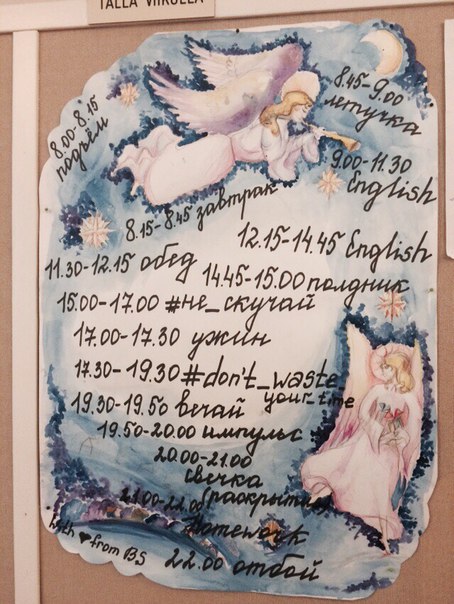 TÄLLÄ VIIKOLLA
8.00-8.15
подъём
8.15-8.45 завтрак
8.45-9.00
летучка
9.00-11.30
English
11.30-12.15 обед
12.15-14.45 English
14.45-15.00 полдник
15.00-17.00 #не_скучай
17.00-17.30 ужин
17.30-19.30 #don't_waste_
your_time
19.30-19.50 вечай
19.50-20.00 импульс
20.00-21.00
свечка
(раскрытие)
21.00-22.00
Homework
22.00 отбой
with ♥ from BS